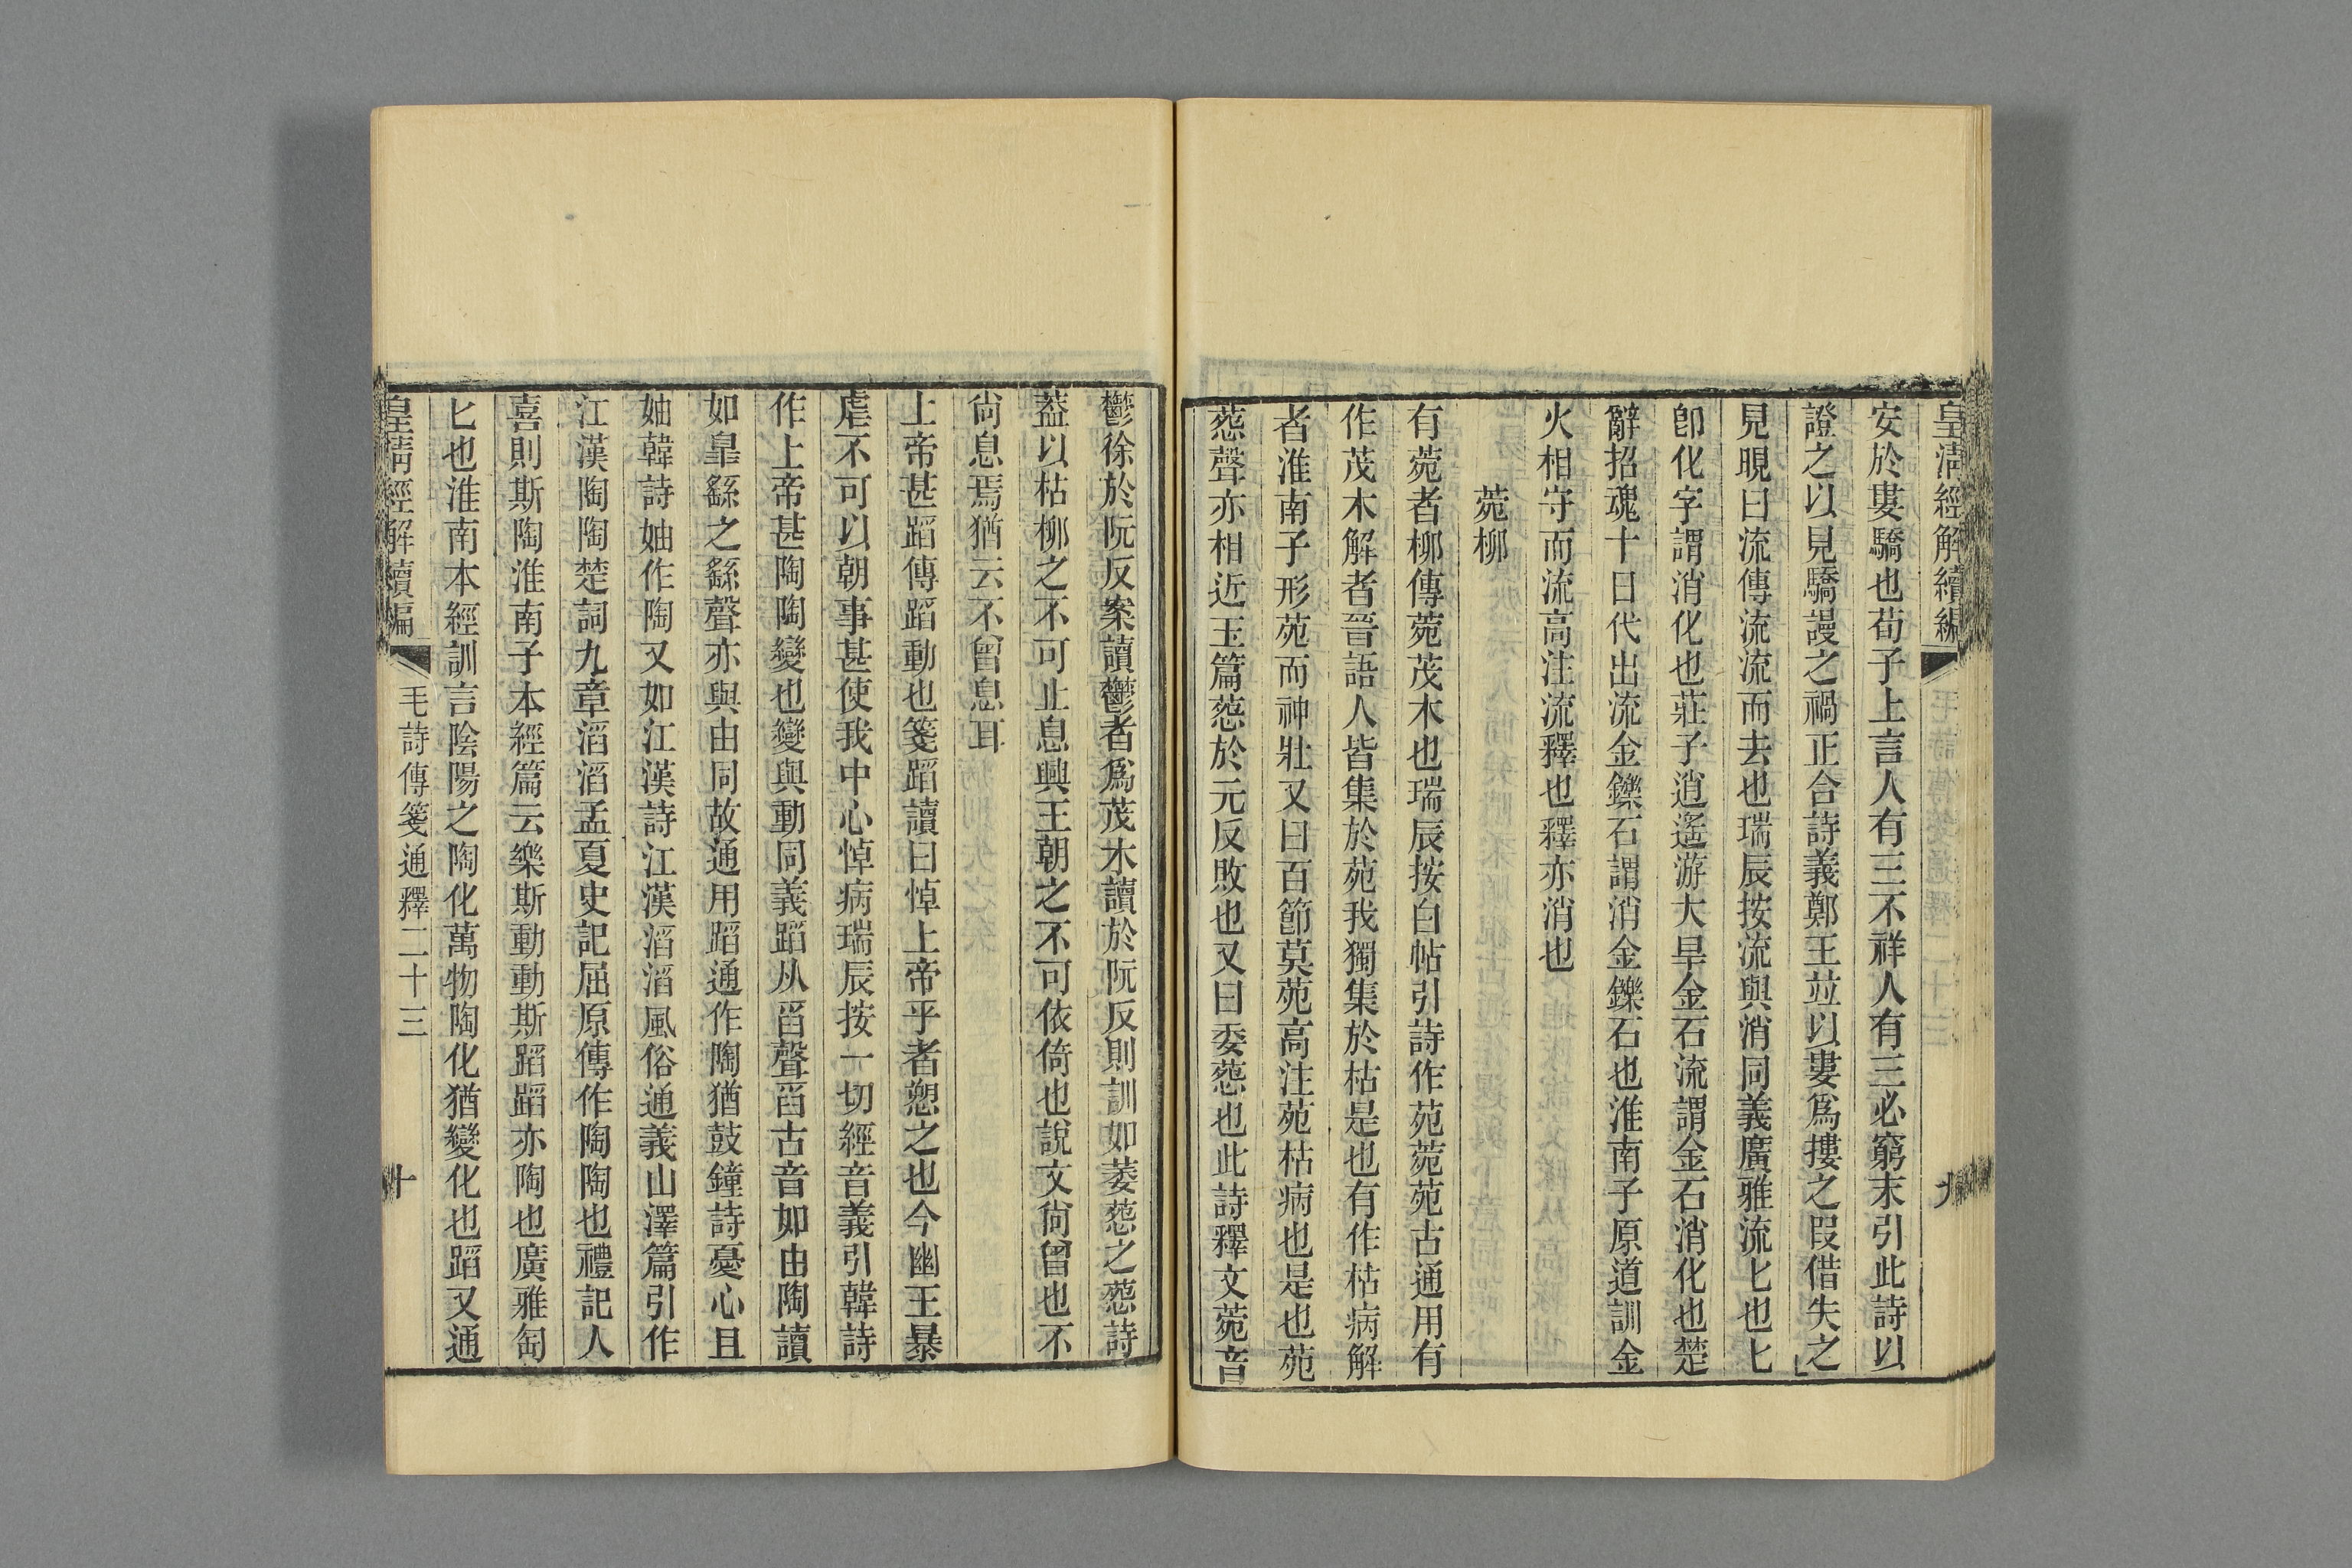 皇清經解續編
九
安於婁驕也荀子上言人有三不祥人有三必窮末引此詩以
證之以見驕謾之禍正合詩義鄭王竝以婁爲摟之叚借失之
見晛曰流傳流流而去也瑞辰按流與消同義廣雅流匕也匕
卽化字謂消化也莊子逍遙游大旱金石流謂金石消化也楚
辭招魂十日代出流金鑠石謂消金鑠石也淮南子原道訓金
火相守而流高注流釋也釋亦消也
菀柳
有菀者柳傳菀茂木也瑞辰按白帖引詩作苑菀苑古通用有
作茂木解者晉語人皆集於苑我獨集於枯是也有作枯病解
者淮南子形苑而神壯又曰百節莫苑高注苑枯病也是也苑
葾聲亦相近玉篇葾於元反敗也又曰委葾也此詩釋文菀音
鬱徐於阮反案讀鬱者爲茂木讀於阮反則訓如萎葾之葾詩
葢以枯柳之不可止息興王朝之不可依倚也說文尙曾也不
尙息焉猶云不曾息耳
上帝甚蹈傳蹈動也箋蹈讀曰悼上帝乎者愬之也今幽王暴
虐不可以朝事甚使我中心悼病瑞辰按一切經音義引韓詩
作上帝甚陶陶變也變與動同義蹈从舀聲舀古音如由陶讀
如臯繇之繇聲亦與由同故通用蹈通作陶猶鼓鐘詩憂心且
妯韓詩妯作陶又如江漢詩江漢滔滔風俗通義山澤篇引作
江漢陶陶楚詞九章滔滔孟夏史記屈原傳作陶陶也禮記人
喜則斯陶淮南子本經篇云樂斯動動斯蹈蹈亦陶也廣雅匋
匕也淮南本經訓言陰陽之陶化萬物陶化猶變化也蹈又通
皇清經解續編
毛詩傳箋通釋二十三
十